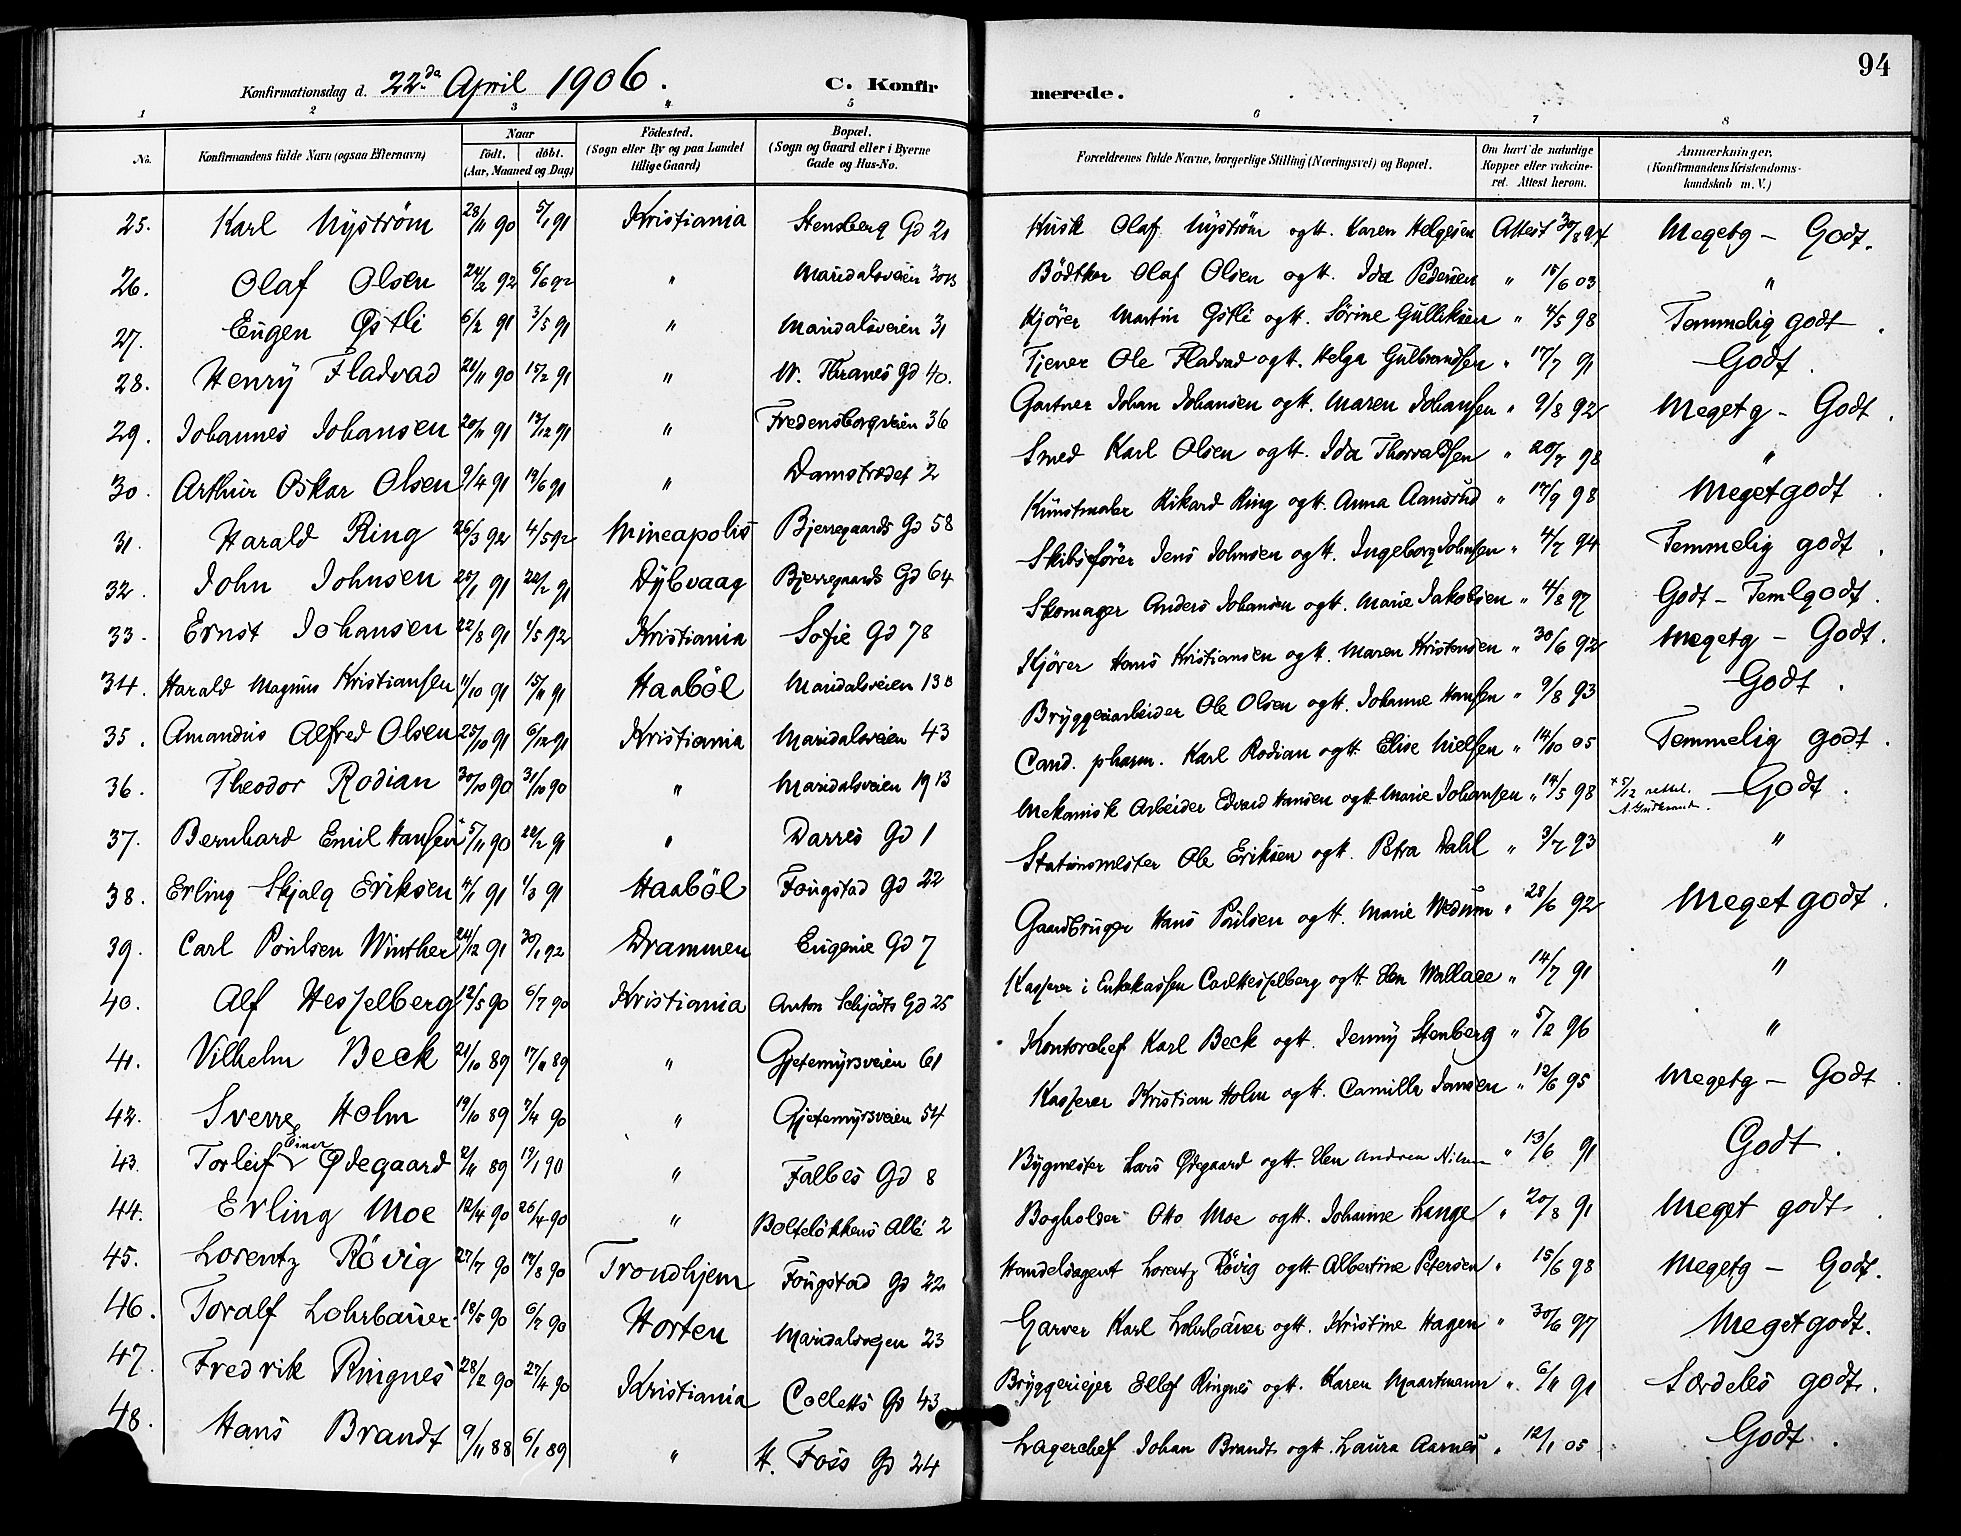 94
Konfirmationsdag d. 22da April 1906.
C. Konfirmerede.
1 2 3 4 5 6 7 8
No.
Konfirmandens fulde Navn (ogsaa Efternavn)
Naar
født. døbt.
(Aar, Maaned og Dag)
Födested.
(Sogn eller By og paa Landet
tillige Gaard)
Bopæl.
(Sogn og Gaard eller i Byerne
Gade og Hus-No.
Forældrenes fulde Navne, borgerlige Stilling (Næringsvei) og Bopæl.
Om havt de naturlige
Kopper eller vakcine-
ret. Attest herom.
Anmærkninger,
(Konfirmandens Kristendoms-
kundskab m. V.)
25. Karl Nyström 28/11 90 5/1 91 Kristiania Stensberg Gd 21 Kusk Olaf Nyström og H. Karen Helgesen Attest 30/8 94 Megetg - Godt.
26. Olaf Olsen 24/2 92 6/6 92 " Maridalsveien 30B Bödtker Olaf Olsen og H. Ida Pedersen " 15/6 03 "
27. Eugen Østli 6/2 91 3/5 91 " Maridalsveien 31 Kjörer Martin Østli og H. Sörine Gulliksen " 4/5 98 Temmelig godt.
28. Henry Fladvad 21/11 90 15/2 91 " W. Thranes Gd 40. Tjener Ole Fladvad og H. Helga Gulbrandsen " 17/7 91 Godt.
29. Johannes Johansen 20/11 91 13/12 91 " Fredensborgveien 36 Gartner Johan Johansen og H. Maren Johansen " 9/8 92 Megetg - Godt.
30. Arthur Oskar Olsen 9/4 91 14/6 91 " Damstrædet 2 Smed Karl Olsen og H. Ida Thorvaldsen " 20/7 98 "
31. Harald Ring 26/3 92 4/5 92 Mineapolis Bjerregaards Gd 58 Kunstmaler Rikard Ring og H. Anna Aamsrud " 17/9 98 Meget godt.
32. John Johnsen 25/1 91 22/2 91 Dybvaag Bjerregaards Gd 64 Skibsförer Jens Johnsen og H. Ingeborg Johnsen " 4/7 94 Temmelig godt.
33. Ernst Johansen 22/8 91 1/5 92 Kristiania Sofie Gd 78 Skomager Anders Johansen og H. Marie Jakobsen " 4/8 97 Godt - Temlgodt.
34. Harald Magnus Kristiansen 11/10 91 15/11 91 Haaböl Maridalsveien 13 B Kjörer Hans Kristiansen og H. Maren Kristensen " 30/6 92 Megetg - Godt.
35. Amandus Alfred Olsen 25/10 91 6/12 91 Kristiania Maridalsveien 43 Bryggeriarbeider Ole Olsen og H. Johanne Hansen " 9/8 93 Godt.
36. Theodor Rodian 30/10 90 31/10 90 " Maridalsveien 19 B Cand. pharm. Karl Rodian og H. Elise Nielsen " 14/10 05 Temmelig godt.
37. Bernhard Emil Hansen x 5/11 90 22/2 91 " Darres Gd 1 Mekanisk Arbeider Edvard Hansen og H. Marie Johansen " 14/5 98 x 5/12 rettet. Godt.
38. Erling Skjalg Eriksen 4/1 91 1/3 91 Haaböl Fougstad Gd 22 Stationsmester Ole Eriksen og H. Petra Dahl " 3/7 93 "
39. Carl Poulsen Winther 24/12 91 30/1 92 Drammen Eugenie Gd 7 Gaardbruger Hans Poulsen og H. Marie Medum " 28/6 92 Meget godt.
40. Alf Hesselberg 12/5 90 6/7 90 Kristiania Anton Schjödts Gd 25 Kasserer i Enkekassen Carl Hesselberg og H. Elen Wallace " 14/7 91 "
41. Vilhelm Beck 21/10 89 17/11 89 " Gjetemyrsveien 61 Kontorchef Karl Beck og H. Jenny Stenberg " 5/2 96 "
42. Sverre Holm 19/10 89 7/4 90 " Gjetemyrsveien 54 Kasserer Kristian Holm og H. Camilla Jansen " 12/6 95 Megetg - Godt.
43. Torleif Einar Ødegaard 2/11 89 19/1 90 " Falbes Gd 8 Bygmester Lars Ødegaard og H. Elen Andrea Nilsen " 13/6 91 Godt.
44. Erling Moe 12/4 90 26/4 90 " Bolteløkkens Allé 2 Bogholder Otto Moe og H. Johanne Lange " 20/8 91 Meget godt.
45. Lorentz Rövig 27/7 90 17/8 90 Trondhjem Fougstad Gd 22 Handelsagent Lorentz Rövig og H. Albertine Petersen " 15/6 98 Megetg - Godt.
46. Toralf Lohrbauer 18/5 90 6/7 90 Horten Maridalsvegen 23 Garver Karl Lohrbauer og H. Kristine Hagen " 30/6 97 Meget godt.
47. Fredrik Ringnes 28/2 90 27/4 90 Kristiania Colletts Gd 43 Bryggerieier Ellef Ringnes og H. Karen Maartmann " 6/11 91 Særdeles godt.
48. Hans Brandt 9/11 88 6/1 89 " H. Foss Gd 24 Lagerchef Johan Brandt og H. Laura Aarnes " 12/1 05 Godt.